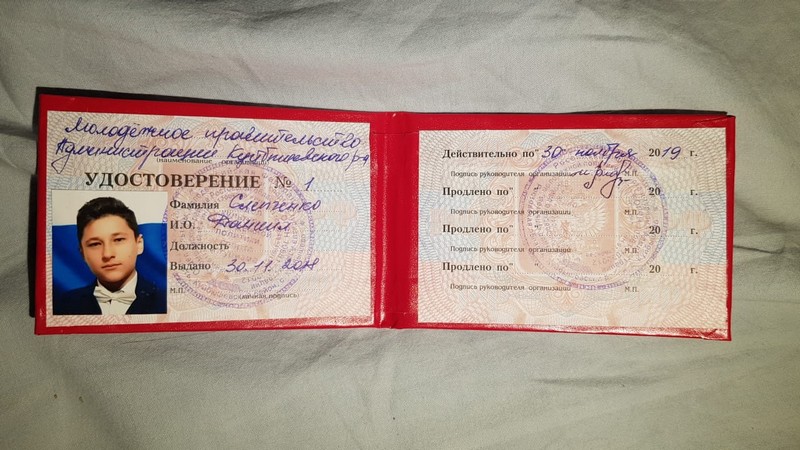 Молодёжное правительство
Администрации Куйбышевского р-а
(наименование организации)
УДОСТОВЕРЕНИЕ № 1
Фамилия Слепченко
И.О. Даниил
Должность
Выдано 30.11.2018
М.П. (личная подпись)
Действительно по "30 ноября 2019 г.
Подпись руководителя организации М.П.
Продлено по" 20 г.
Подпись руководителя организации М.П.
Продлено по" 20 г.
Подпись руководителя организации М.П.
Продлено по" 20 г.
Подпись руководителя организации М.П.